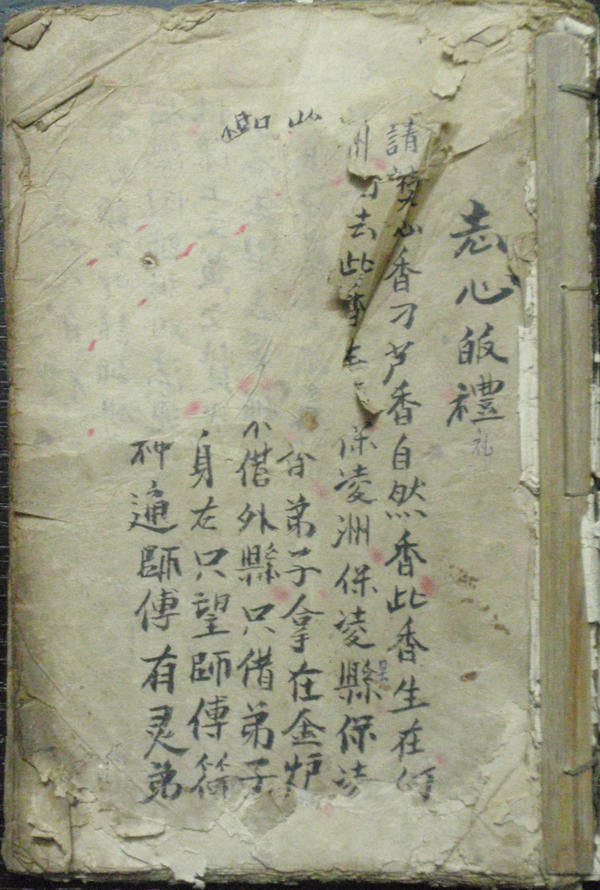 志心皈禮
礼
請 心香刁芦香自然香此香生在何
州 去此香生 保凌洲保凌縣保
此 弟子拿在金炉
借外縣只借弟子
身左只望師傅
神通師傅有灵弟